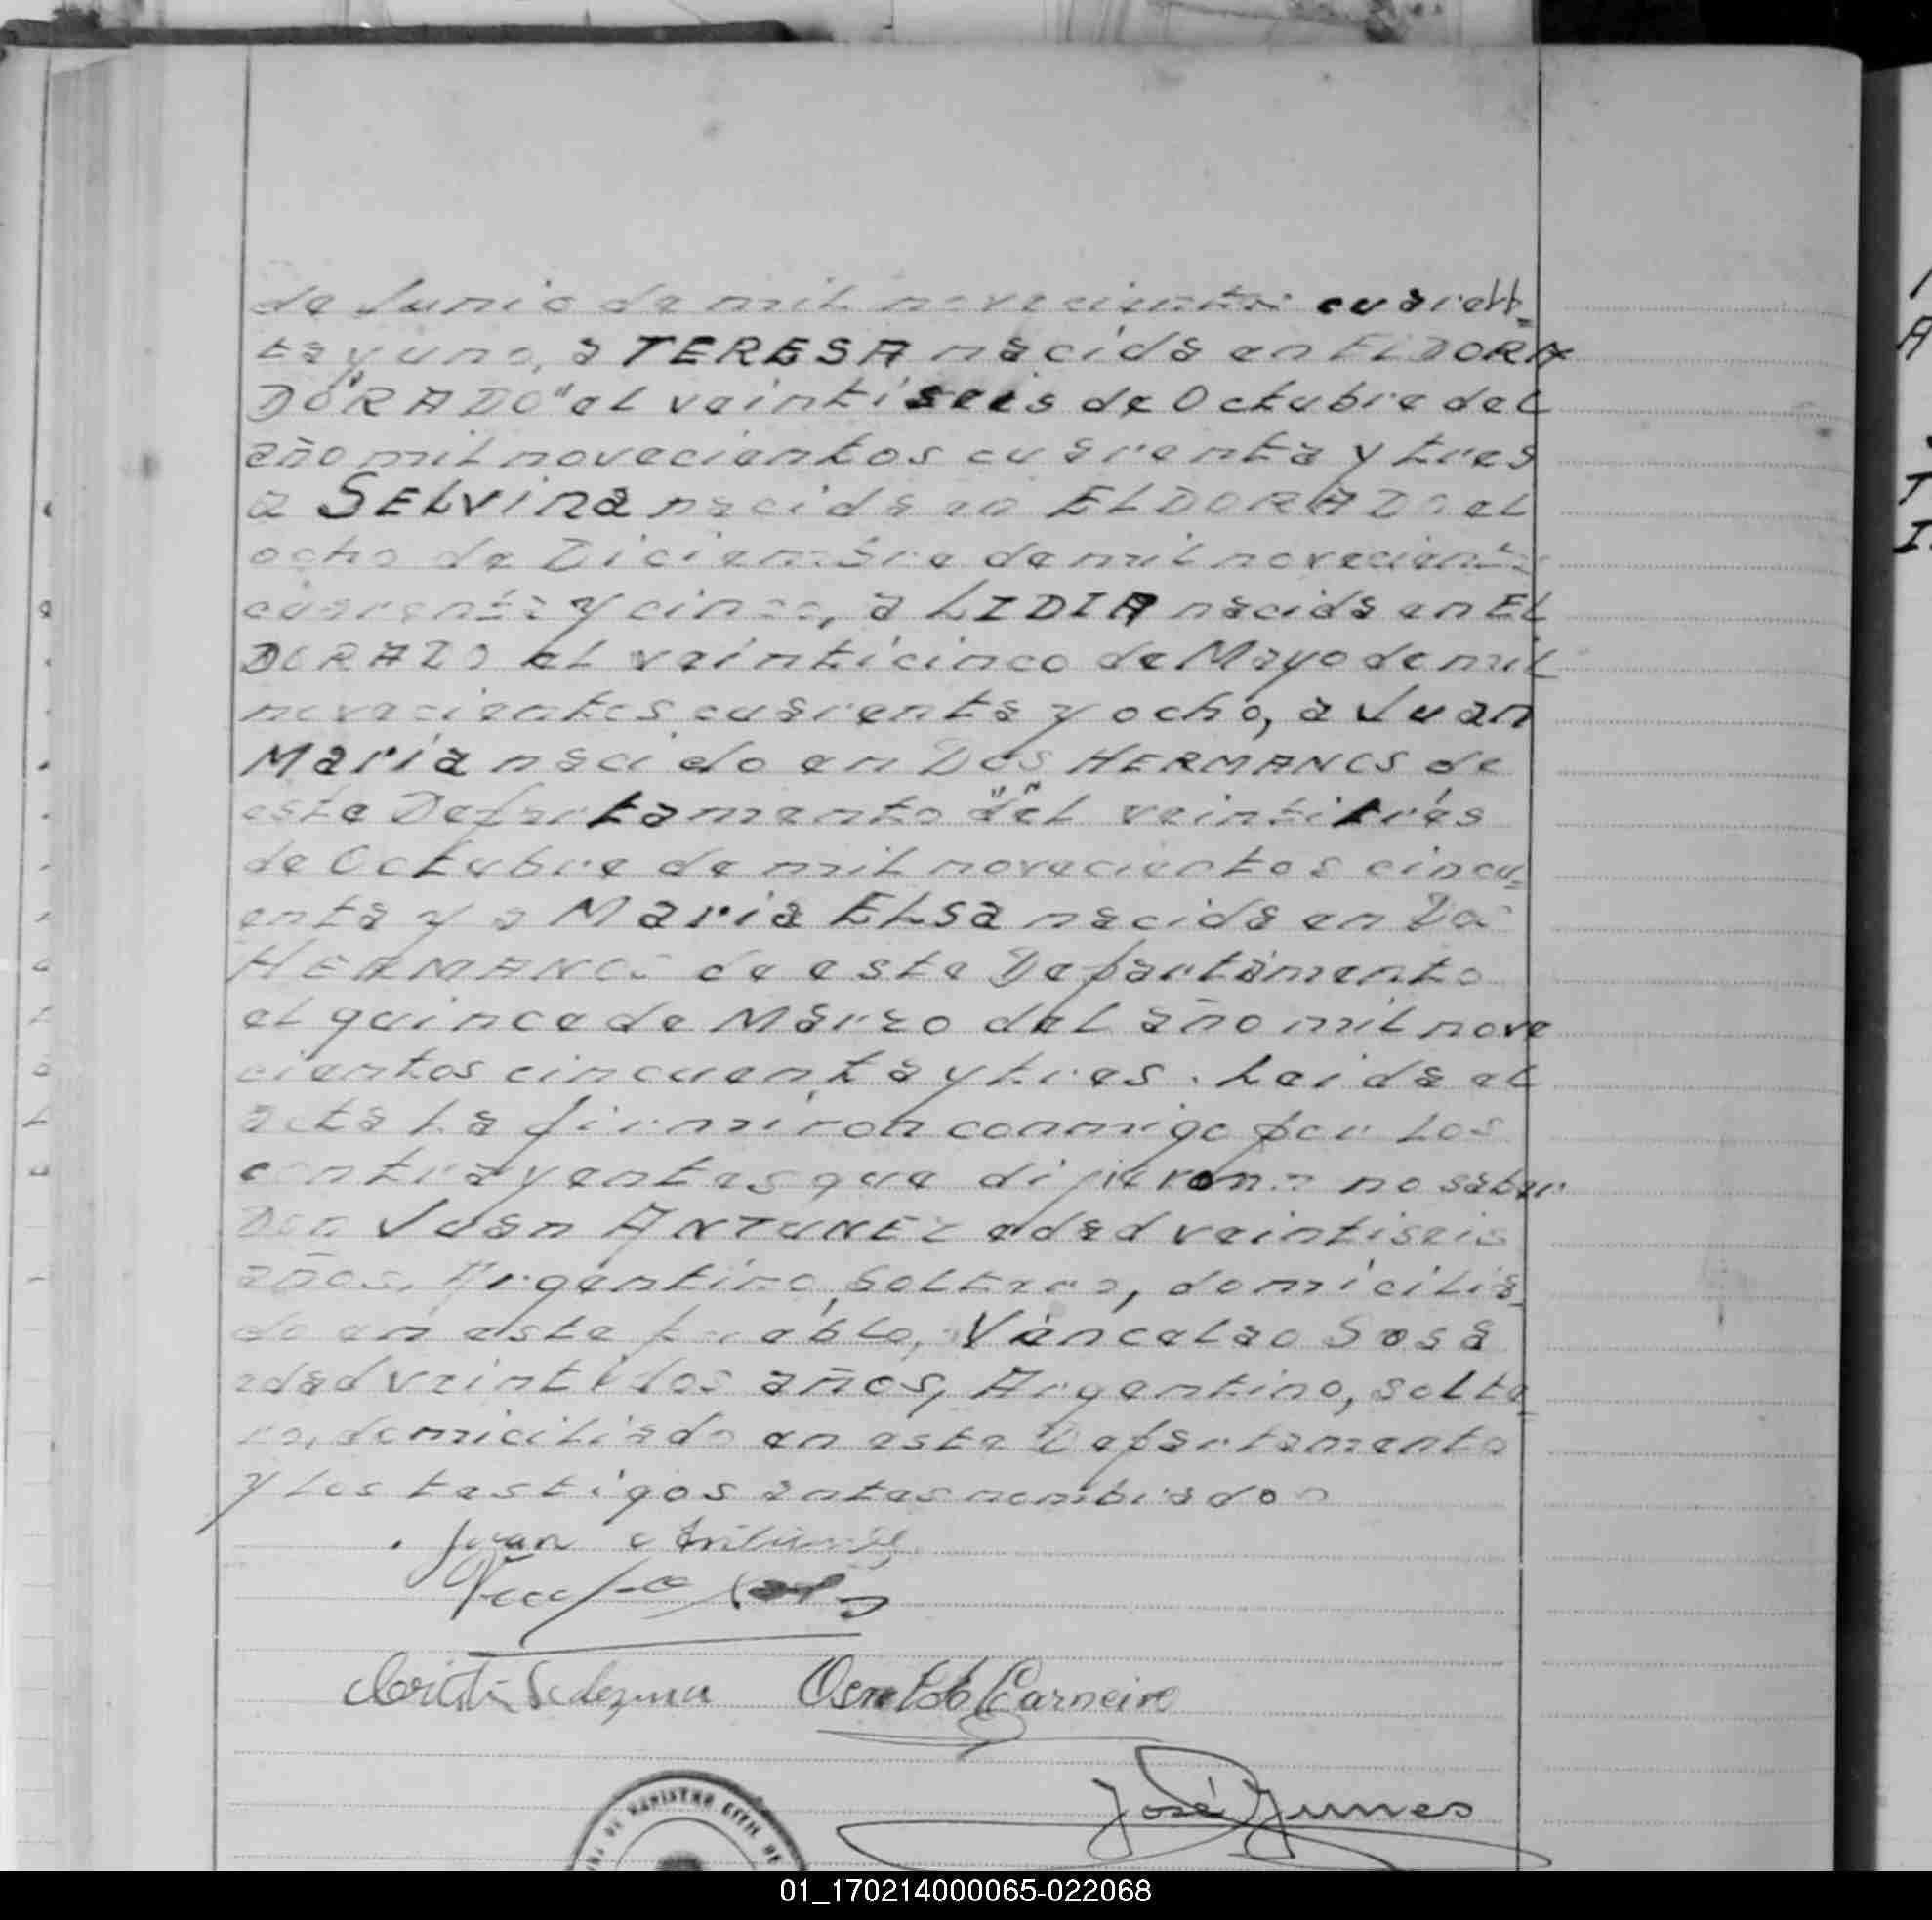 de Junio de mil novecientos cuaren-
ta y uno, a TERESA nacida en ELDORA
DORADO" el veintiseis de Octubre del
año mil novecientos cuarenta y tres
a SELVINA nacida en ELDORADO el
ocho de Diciembre de mil novecientos
cuarenta y cinco, a LIDIA nacida en EL
DORADO el veinticinco de Mayo de mil
novecientos cuarenta y ocho, a Juan
Maria nacido en DOS HERMANOS de
este Departamento del veintitrés
de Octubre de mil novecientos cincu-
enta y a Maria ELSA nacida en Dos
HERMANOS de este Departamento
el quince de Marzo del año mil nove
cientos cincuenta y tres. Leida el
acta la firmaron conmigo por los
contrayentes que dijeron no saber
Don Juan ANTUNEZ edad veintiseis
años, Argentino, soltero, domicilia-
do en este pueblo, Vencelao Sosa
edad veintidos años, Argentino, solte-
ro, domiciliado en este Departamento
y los testigos antes nombrados
Juan Antunez
Osvaldo Carneiro
José Nunes
REGISTRO CIVIL DE
01_170214000065-022068